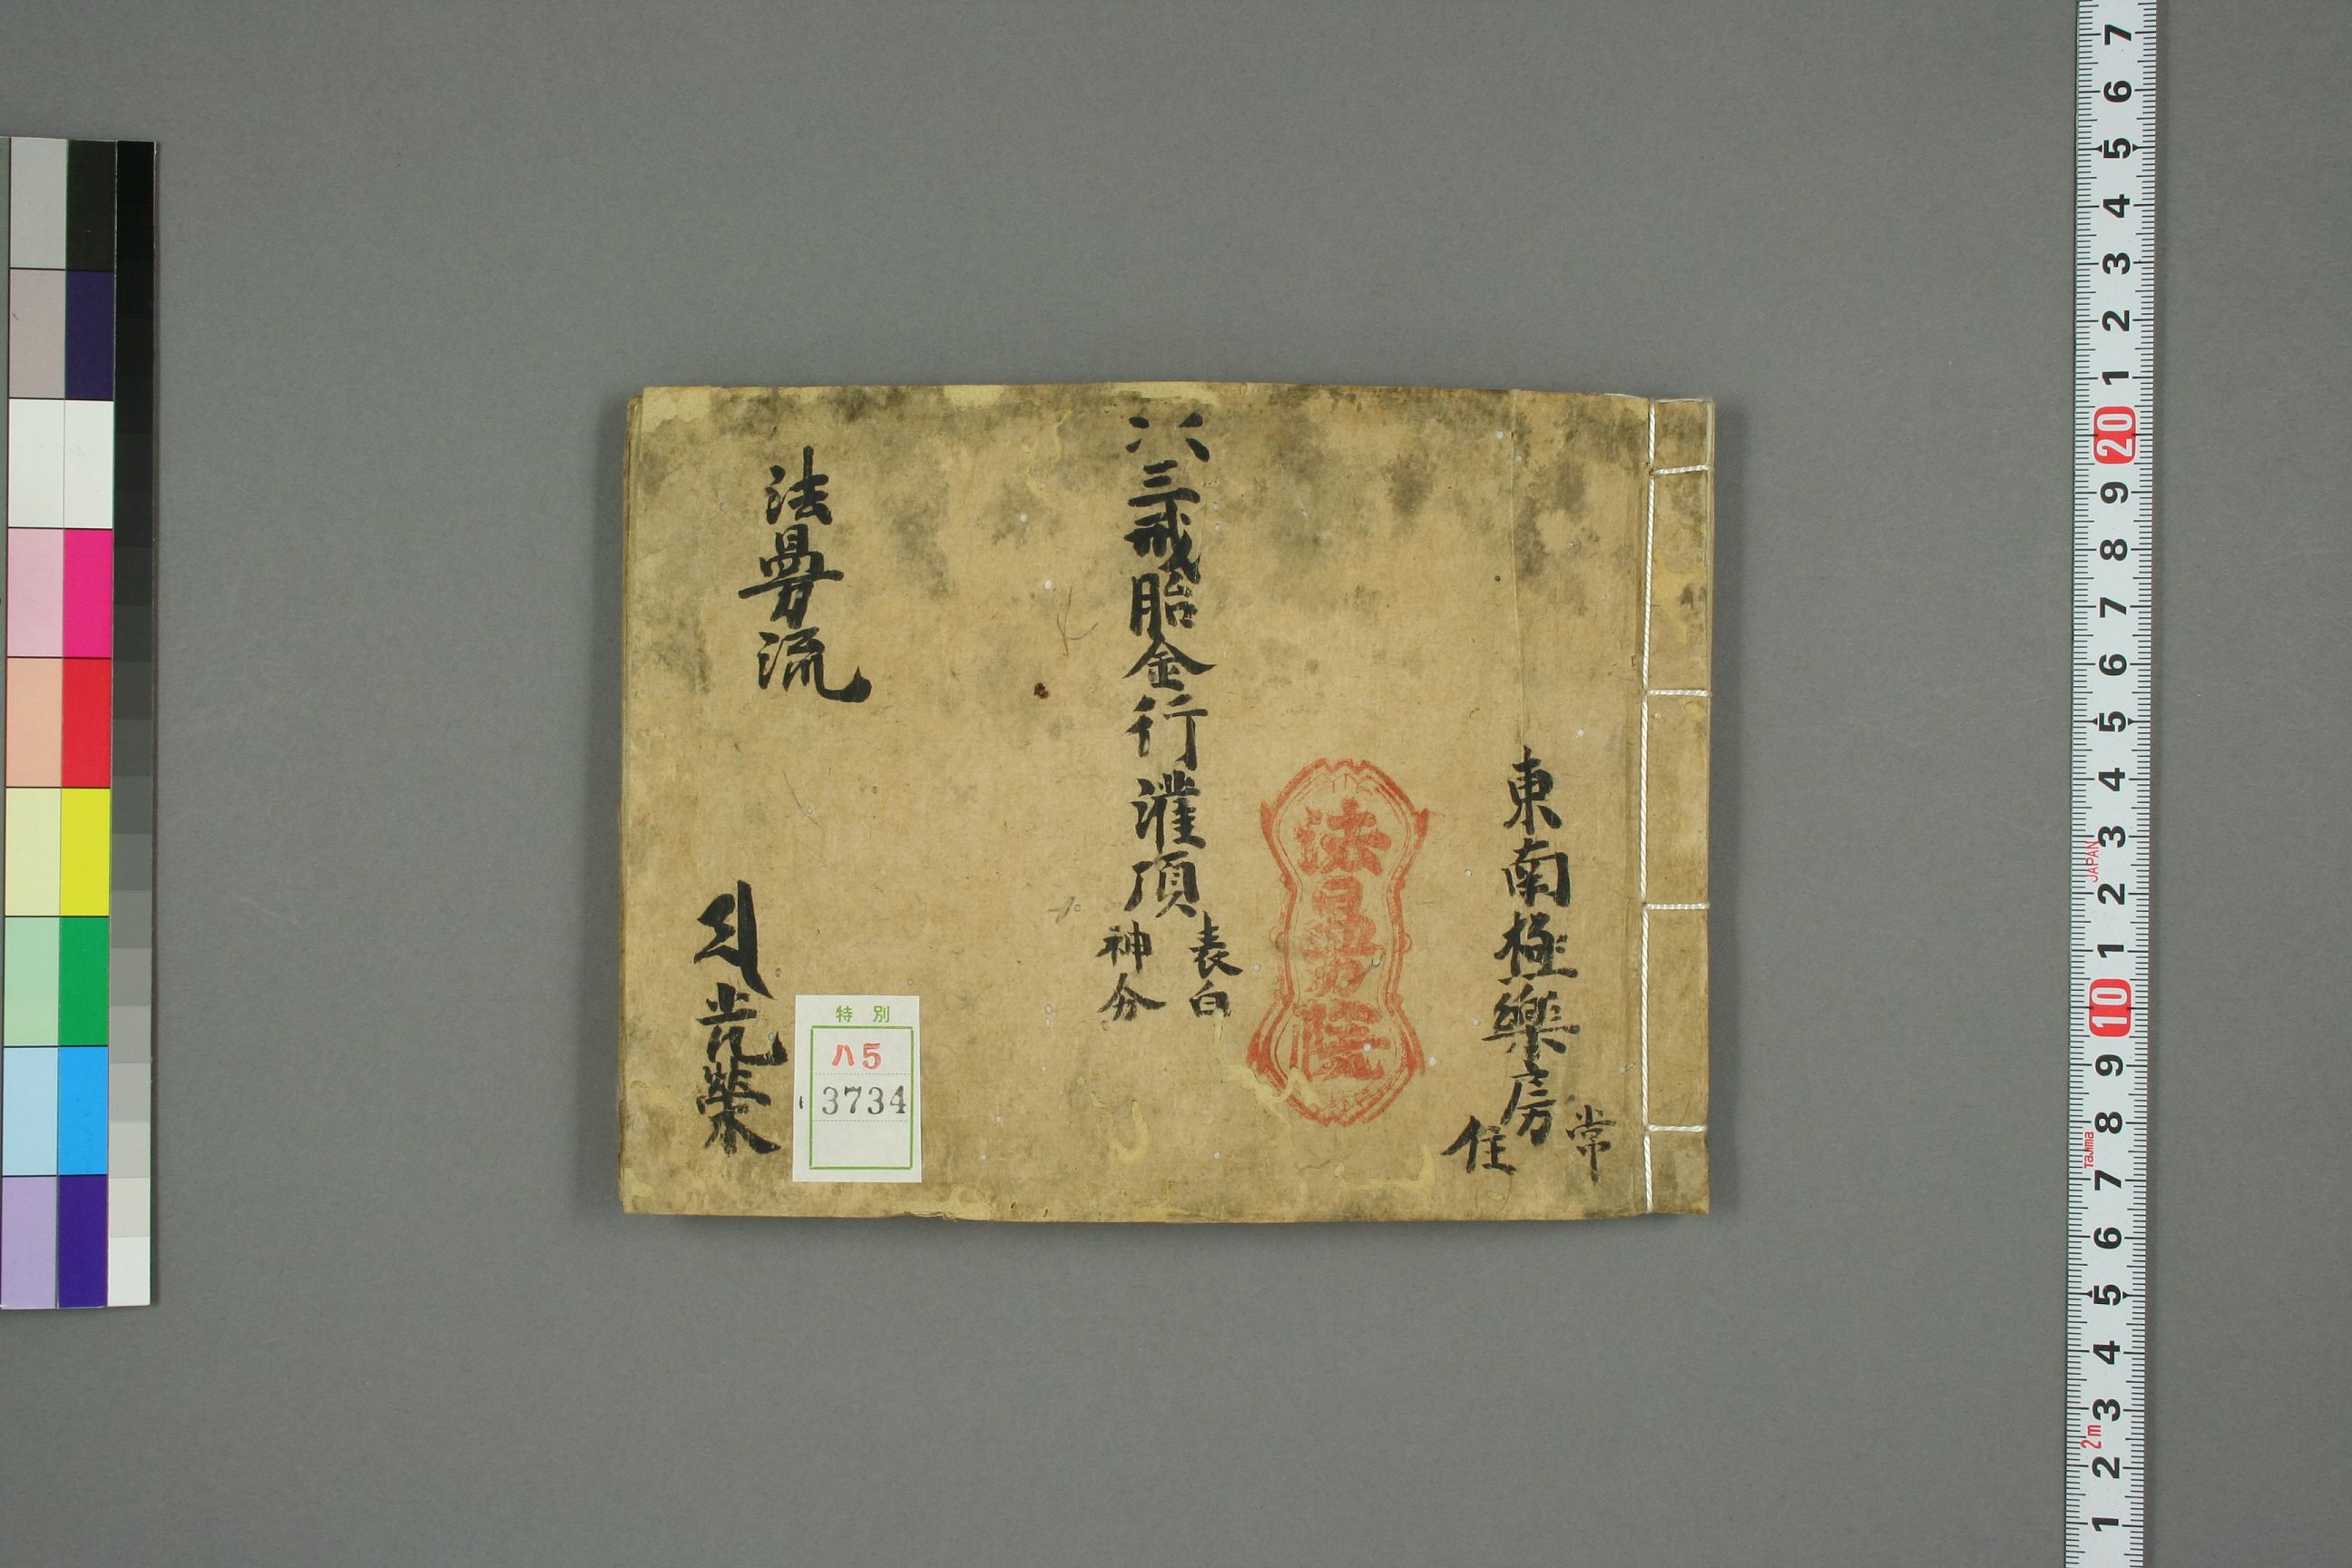 東南極樂房
常
住
法曼院
三戒胎金行灌頂
表白
神分
法曼流
榮
特別
ハ5
3734
7
6
5
4
3
2
1
20
9
8
7
6
5
4
3
JAPAN
2
1
10
9
8
Tajima
7
6
5
4
3
2m
2
1